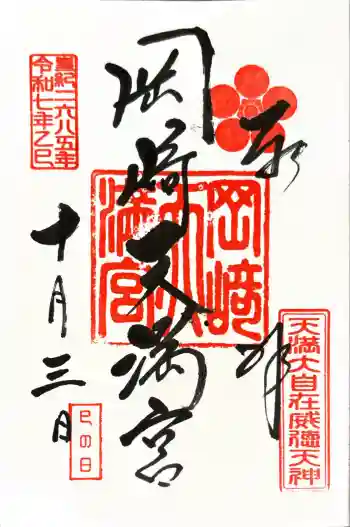 奉拝
天満大自在威徳天神
岡崎天満宮
岡崎天満宮
皇紀二六八五年
令和七年乙巳
十月三日
巳の日